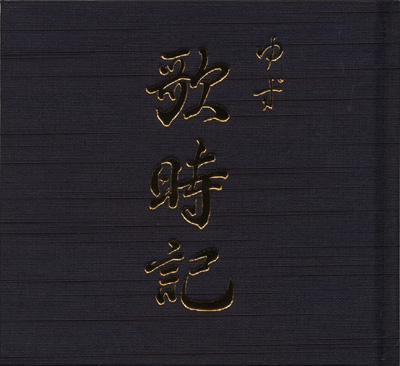 ゆず
歌時記